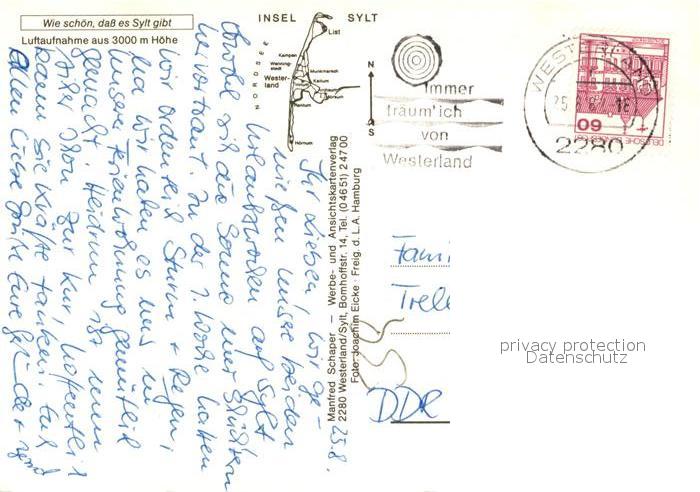 Wie schön, daß es Sylt gibt
Luftaufnahme aus 3000 m Höhe
INSEL SYLT
List
Kampen
Wenningstedt
Westerland
Munkmarsch
Keitum
Rantum
Hörnum
NORDSEE
N
S
Immer
träum' ich
von
Westerland
WESTERLAND
2280
60
DEUTSCHE BUNDESPOST
Manfred Schaper — Werbe- und Ansichtskartenverlag
2280 Westerland/Sylt, Bomhoffstr. 14, Tel. (04651) 24700
Foto: Joachim Eicke · Freig. d. L.A. Hamburg
25.8.
Ihr Lieben, wir ge-
nießen unsere beiden
Urlaubswochen auf Sylt
obwohl sich die Sonne nur
heraus traut. In der 1. Woche hatten
wir ordentlich Sturm + Regen,
wir haben es uns in
unserer Ferienwohnung gemütlich
gemacht. Heidrun ist nun
zur Kur, hoffentlich
kann sie Kräfte tanken. Euch
allen liebe Grüße Eure
Fami
Trele
DDR
privacy protection
Datenschutz